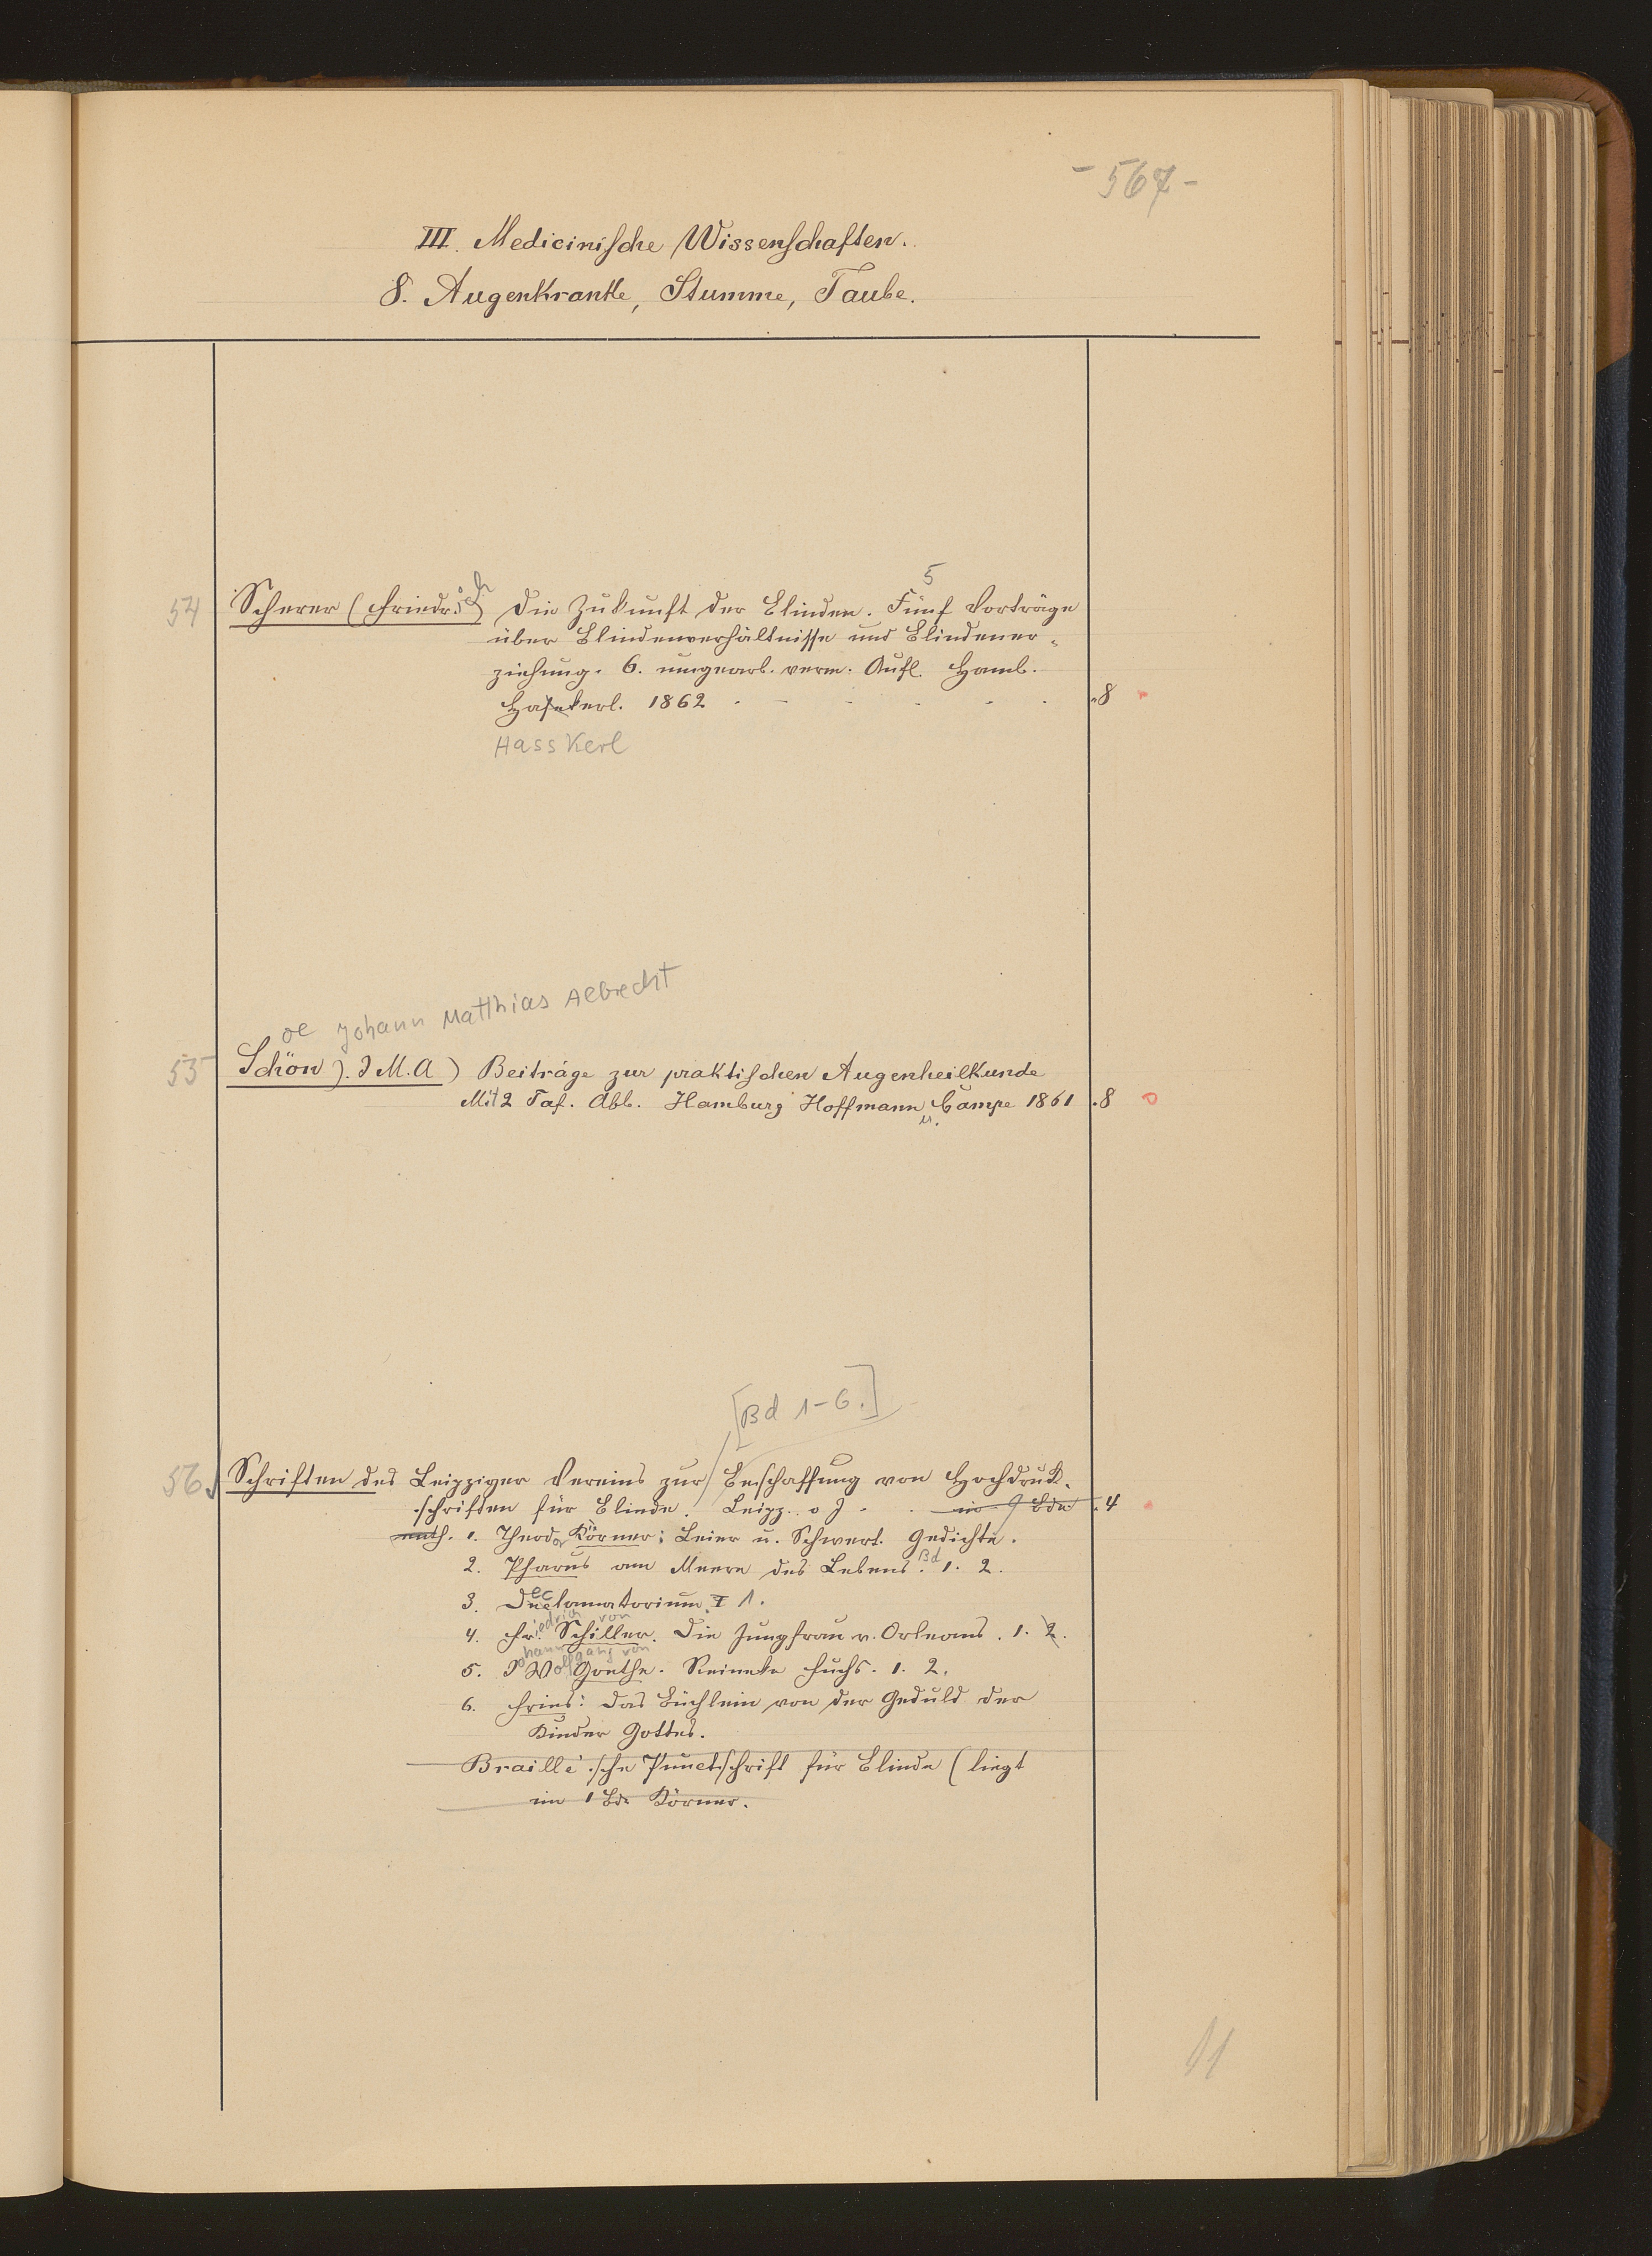 - 567 -
III. Medicinische Wissenschaften.
8. Augenkranke, Stumme, Taube.
5
54 Scherer (Friedr.ich) Die Zukunft der Blinden. Fünf Vorträge
über Blindenverhältnisse und Blindener-
ziehung. 6. umgearb. verm. Aufl. Hamb.
Hassekerl. 1862 . - - . . . .8
Hasskerl
oe Johann Matthias Albrecht
55 Schön). J M. A) Beiträge zur praktischen Augenheilkunde
Mit 2 Taf. Abb. Hamburg Hoffmann u. Campe 1861 .8
[Bd 1-6.]
56 Schriften des Leipziger Vereins zur Beschaffung von Hochdruck-
schriften für Blinde. Leipz.. o J . . in 9 Bde .4
enth. 1. Theodor Körner: Leier u. Schwert. Gedichte.
2. Pharus am Meere des Lebens. Bd 1. 2.
3. Declamatorium. I 1.
4. Friedrich von Schiller. Die Jungfrau v. Orleans. 1. 2.
5. Johann Wolfgang von Goethe. Reineke Fuchs. 1. 2.
6. Fries: Das Büchlein von der Geduld der
Kinder Gottes.
Braille'sche Punctschrift für Blinde (liegt
im 1 Bde Körner.
11